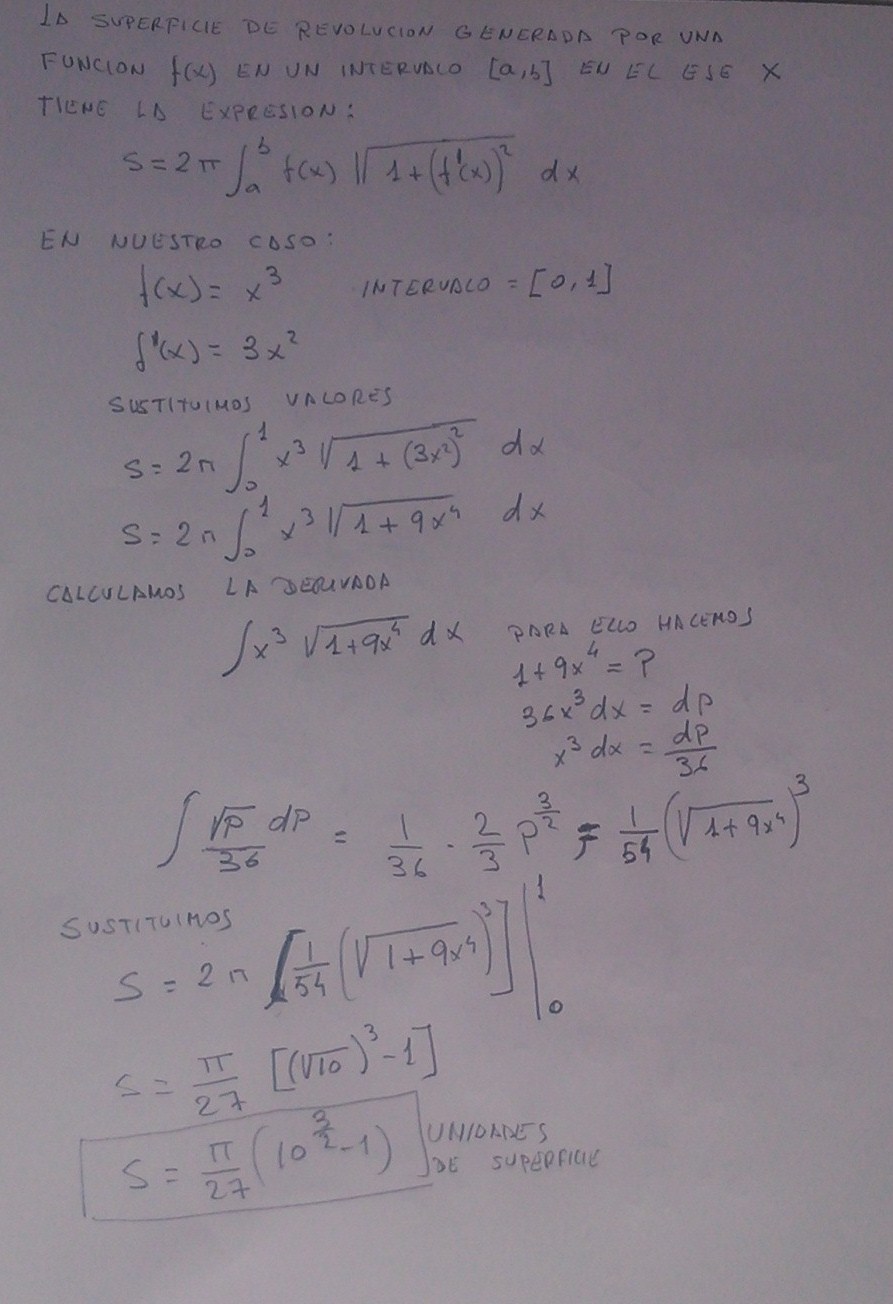 LA SUPERFICIE DE REVOLUCION GENERADA POR UNA
FUNCION f(x) EN UN INTERVALO [a,b] EN EL EJE X
TIENE LA EXPRESION:
S = 2π ∫_a^b f(x) √(1+(f'(x))²) dx
EN NUESTRO CASO:
f(x) = x³ INTERVALO = [0,1]
f'(x) = 3x²
SUSTITUIMOS VALORES
S = 2π ∫_0^1 x³ √(1 + (3x²)²) dx
S = 2π ∫_0^1 x³ √(1 + 9x⁴) dx
CALCULAMOS LA DERIVADA
∫ x³ √(1+9x⁴) dx PARA ELLO HACEMOS
1+9x⁴ = P
36x³ dx = dp
x³ dx = dp/36
∫ √P/36 dP = 1/36 · 2/3 P^(3/2) = 1/54 (√(1+9x⁴))³
SUSTITUIMOS
S = 2π [1/54 (√(1+9x⁴))³] |_0^1
S = π/27 [(√10)³ - 1]
S = π/27 (10^(3/2) - 1) UNIDADES
DE SUPERFICIE